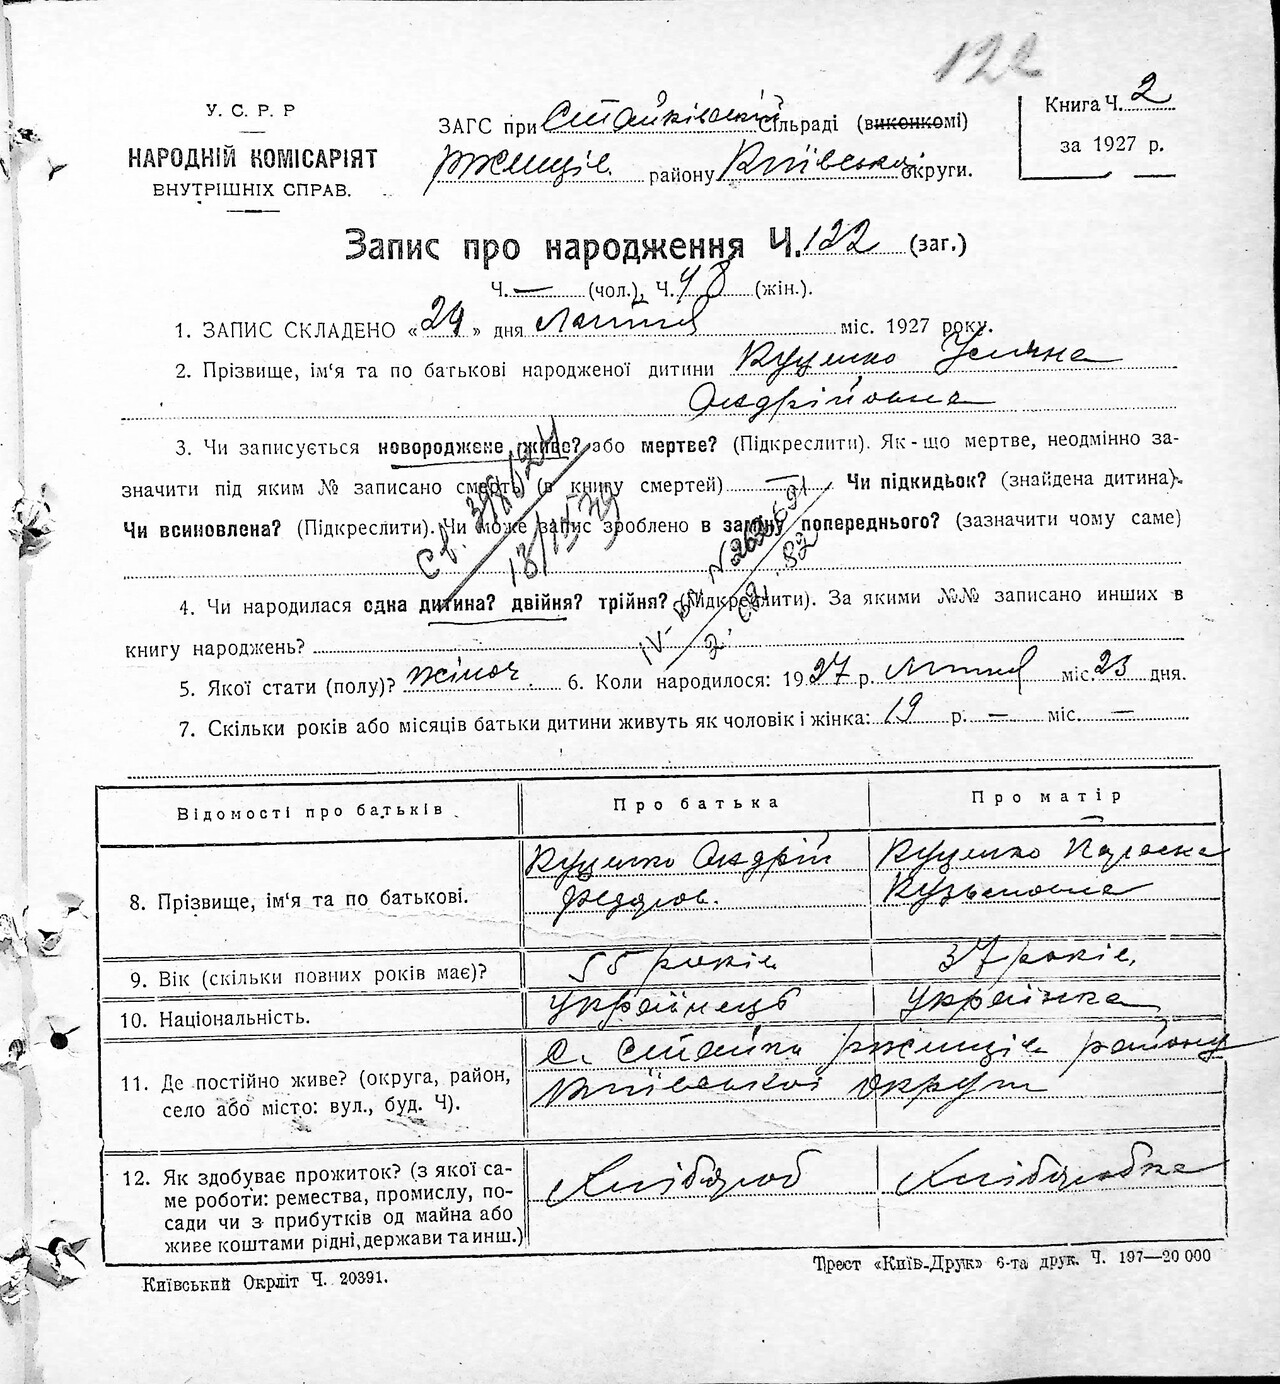 122
У. С. Р. Р
НАРОДНІЙ КОМІСАРІЯТ
ВНУТРІШНІХ СПРАВ.
ЗАГС при Стайківській Сільраді (виконкомі)
Ржищів. району Київської округи.
Книга Ч. 2
за 1927 р.
Запис про народження Ч. 122 (заг.)
Ч. — (чол.), Ч. 48 (жін.).
1. ЗАПИС СКЛАДЕНО « 24 » дня Лютня міс. 1927 року.
2. Прізвище, ім'я та по батькові народженої дитини Куценко Уляна
Андрійовна
3. Чи записується новороджене живе? або мертве? (Підкреслити). Як-що мертве, неодмінно за-
значити під яким № записано смерть (в книгу смертей) — Чи підкидьок? (знайдена дитина).
Чи всиновлена? (Підкреслити). Чи може запис зроблено в заміну попереднього? (зазначити чому саме)
4. Чи народилася одна дитина? двійня? трійня? (Підкреслити). За якими №№ записано инших в
книгу народжень?
5. Якої стати (полу)? жіноч. 6. Коли народилося: 1927 р. Лютня міс. 23 дня.
7. Скільки років або місяців батьки дитини живуть як чоловік і жінка: 19 р. — міс. —
Відомості про батьків. Про батька Про матір
8. Прізвище, ім'я та по батькові. Куценко Андрій Куценко Параска
Федоров. Кузьмовна
9. Вік (скільки повних років має)? 55 років 37 років.
10. Національність. Українець Українка
11. Де постійно живе? (округа, район, с. Стайки Ржищів району
село або місто: вул., буд. Ч). Київської округи
12. Як здобуває прожиток? (з якої са-
ме роботи: ремества, промислу, по-
сади чи з прибутків од майна або
живе коштами рідні, держави та инш.)
Хлібороб Хліборобка
Київський Окрліт Ч. 20391.
Трест «Київ-Друк» 6-та друк. Ч. 197—20 000